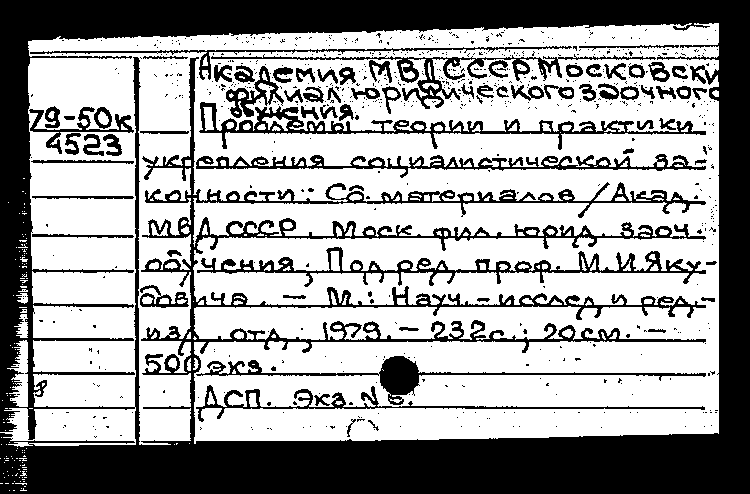 Академия МВД СССР. Московски
филиал юридического заочного
обучения.
79-50к
4523
Проблемы теории и практики
укрепления социалистической за-
конности: Сб. материалов / Акад.
МВД СССР. Моск. фил. юрид. заоч.
обучения; Под ред. проф. М.И. Яку-
бовича. — М.: Науч.-исслед. и ред.-
изд. отд., 1979. — 232с.; 20см. —
500 экз.
ДСП. Экз. №